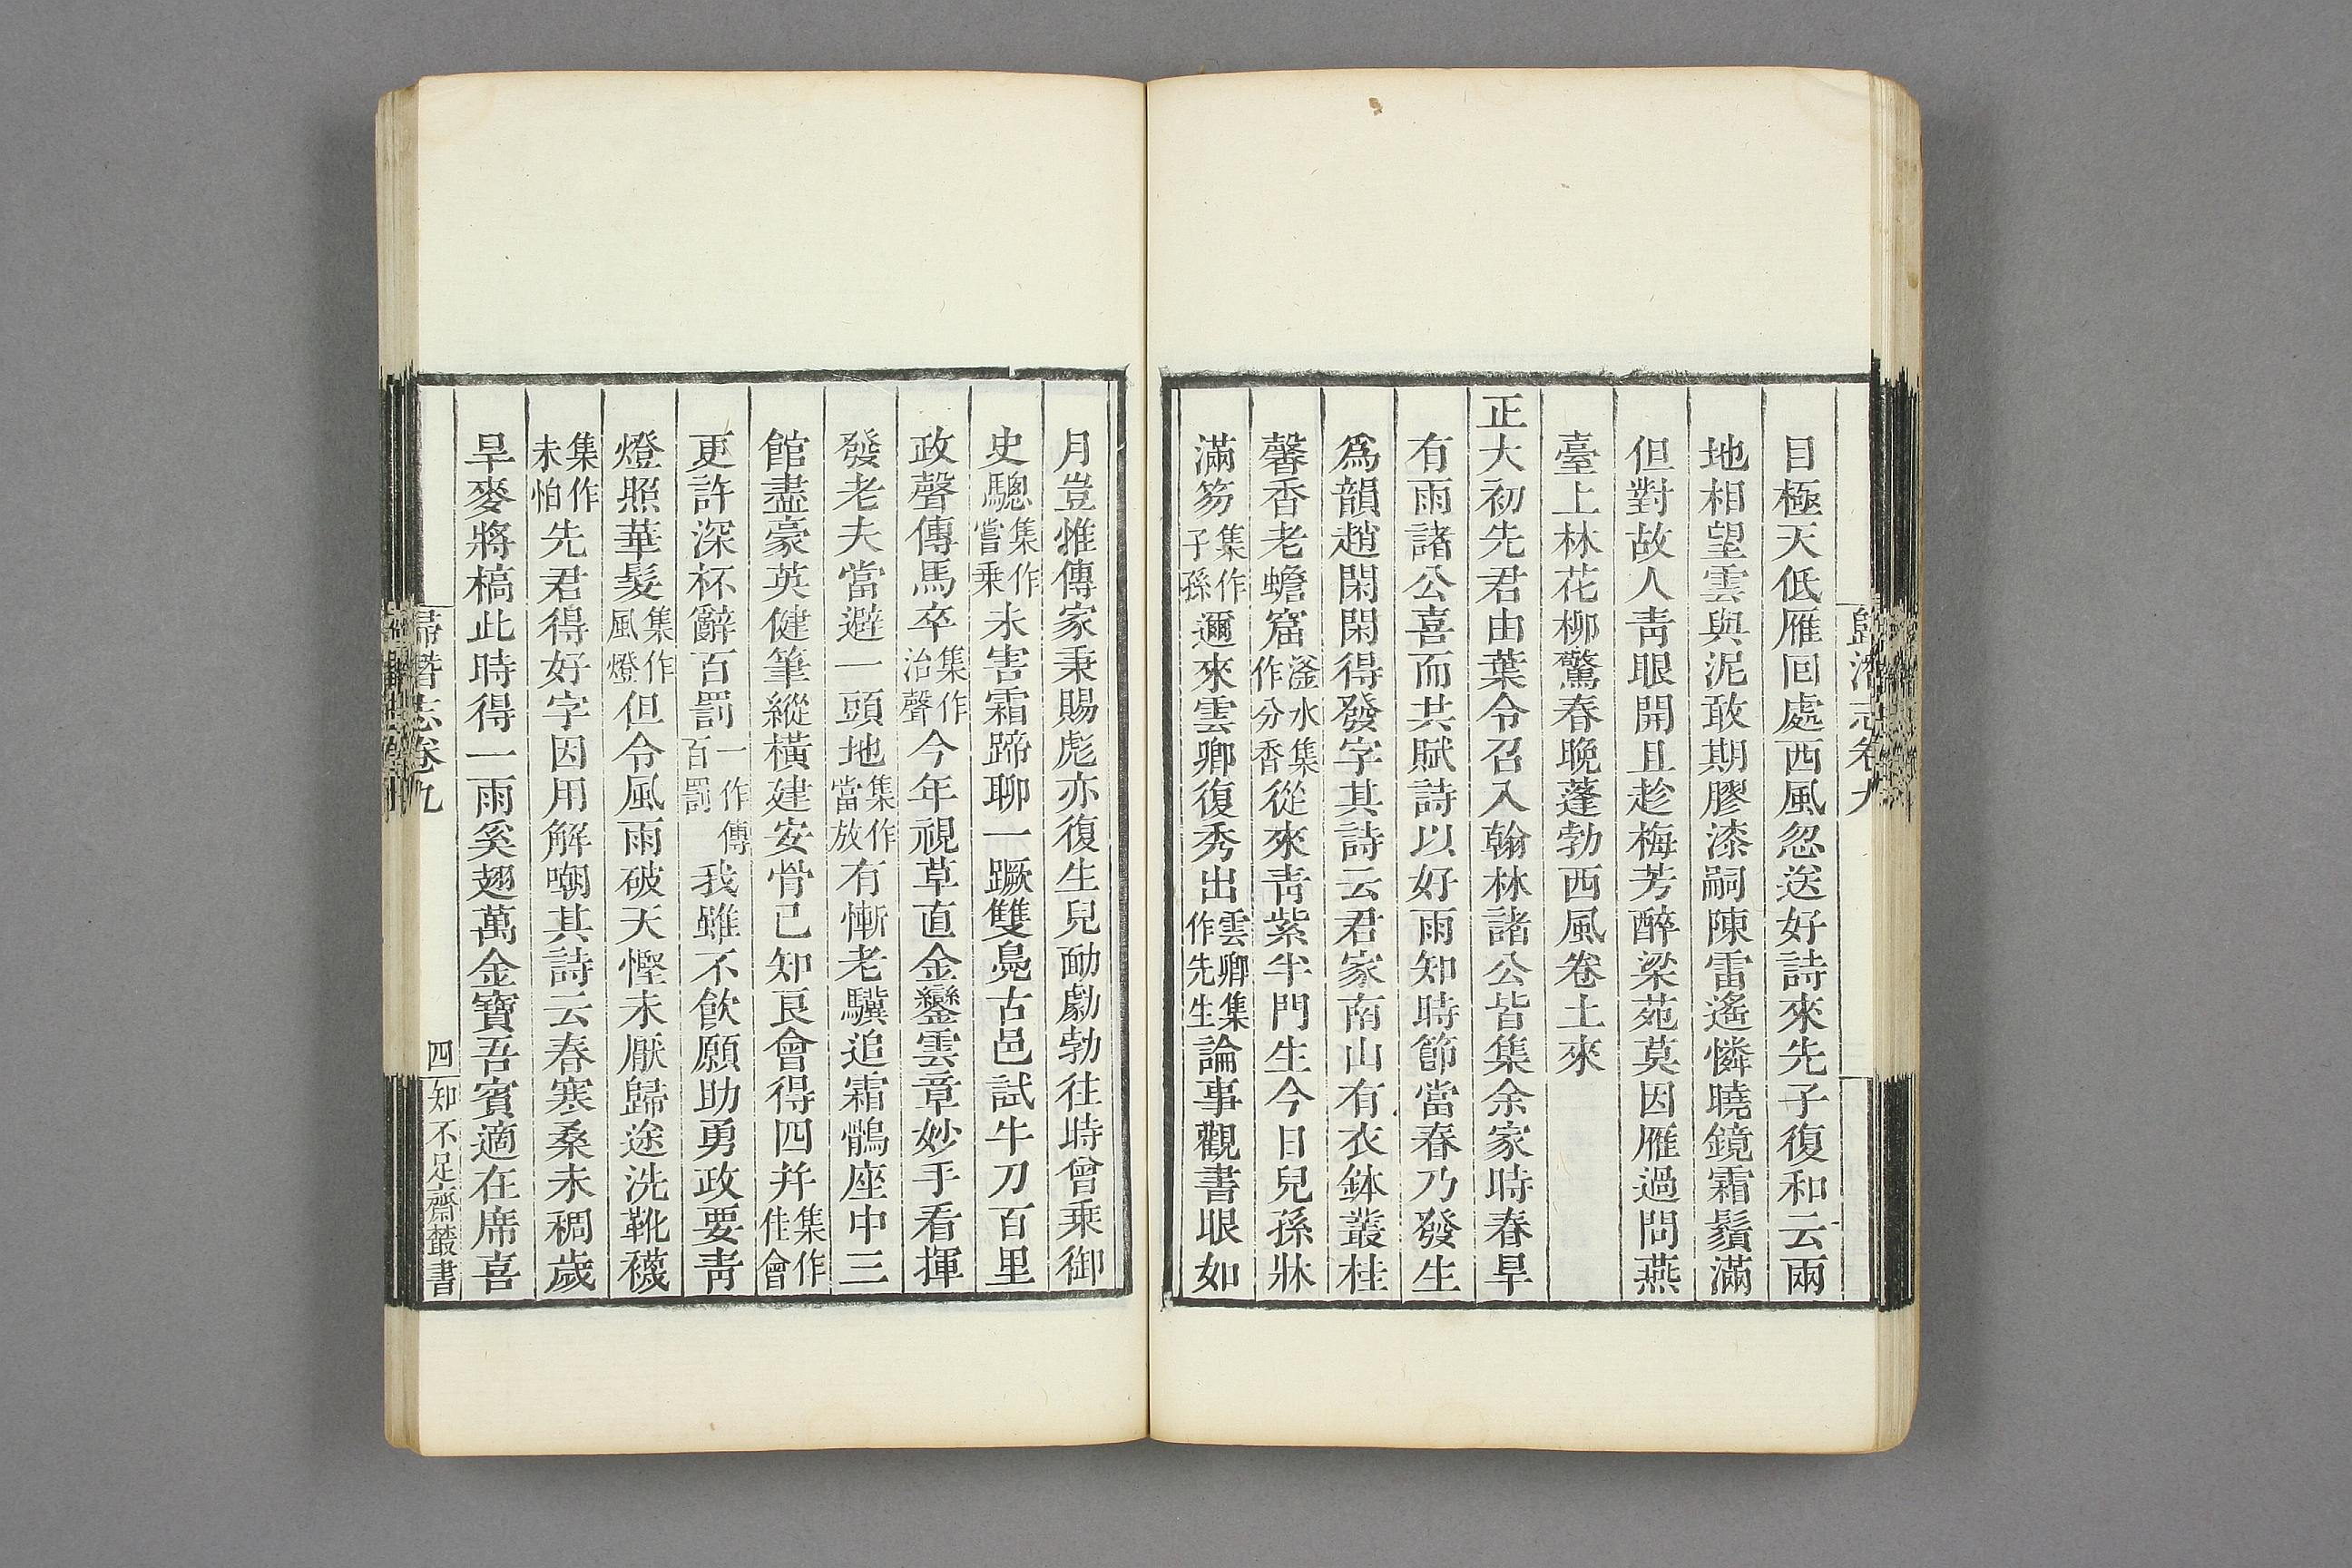 歸潛志卷九
目極天低雁回處西風忽送好詩來先子復和云兩
地相望雲與泥敢期膠漆嗣陳雷遙憐曉鏡霜鬚滿
但對故人靑眼開且趁梅芳醉梁苑莫因雁過問燕
臺上林花柳驚春晚蓬勃西風卷土來
正大初先君由葉令召入翰林諸公皆集余家時春旱
有雨諸公喜而共賦詩以好雨知時節當春乃發生
爲韻趙閑閑得發字其詩云君家南山有衣鉢叢桂
馨香老蟾窟滏水集作分香從來靑紫半門生今日兒孫牀
滿笏集作子孫邇來雲卿復秀出雲卿集作先生論事觀書眼如
月豈惟傳家秉賜彪亦復生兒勔勮勃往時曾乘御
史驄集作嘗乘未害霜蹄聊一蹶雙鳧古邑試牛刀百里
政聲傳馬卒集作治聲今年視草直金鑾雲章妙手看揮
發老夫當避一頭地集作當放有慚老驥追霜鶻座中三
館盡豪英健筆縱橫建安骨已知良會得四幷集作佳會
更許深杯辭百罰一作傳百罰我雖不飮願助勇政要靑
燈照華髮集作風燈但令風雨破天慳未厭歸途洗靴襪
集作未怕先君得好字因用解嘲其詩云春寒桑未稠歲
旱麥將槁此時得一雨奚翅萬金寶吾賓適在席喜
歸潛志卷九
四
知不足齋叢書